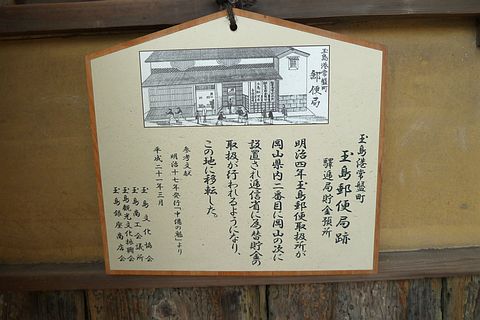 玉島港常盤町
郵便局
玉島港常盤町
玉島郵便局跡
驛逓局貯金預所
明治四年玉島郵便取扱所が
岡山県内二番目に岡山の次に
設置され逓信省に為替貯金の
取扱が行われるようになり、
この地に移転した。
参考文献
明治十七年発行「中備の魁」より
平成二十一年三月
玉島文化協会
玉島商工会議所
玉島観光文化振興会
玉島銀座商店会